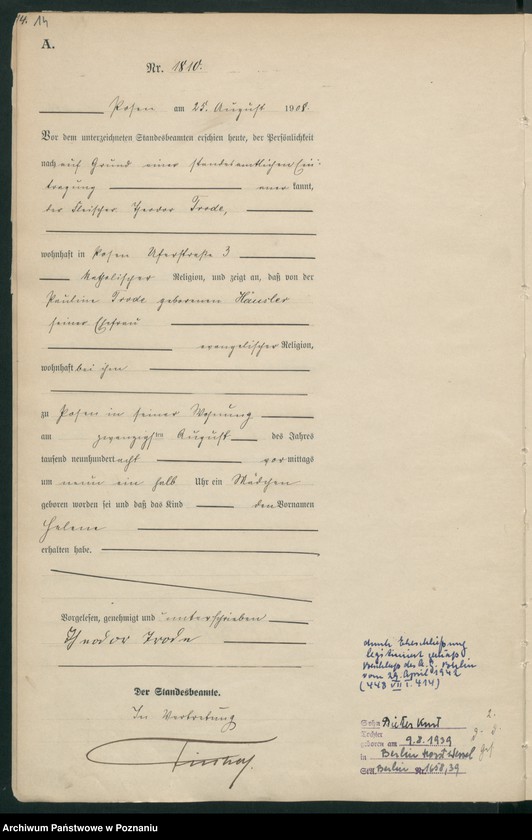 14. 14
A.
Nr. 1810.
Posen am 25. August 1908.
Vor dem unterzeichneten Standesbeamten erschien heute, der Persönlichkeit
nach auf Grund einer standesamtlichen Ein-
tragung anerkannt,
der Fleischer Theodor Trode,
wohnhaft in Posen Uferstraße 3
katholischer Religion, und zeigt an, daß von der
Pauline Trode geborenen Häusler
seiner Ehefrau
evangelischer Religion,
wohnhaft bei ihm
zu Posen in seiner Wohnung
am zwanzigsten August des Jahres
tausend neunhundert acht vormittags
um neun ein halb Uhr ein Mädchen
geboren worden sei und daß das Kind den Vornamen
Helene
erhalten habe.
Vorgelesen, genehmigt und unterschrieben
Theodor Trode
Der Standesbeamte.
In Vertretung
durch Eheschließung
legitimiert gemäß
Beschluß des A.G. Berlin
vom 29. April 1942
(448 VII 414)
Sohn Dieter Kurt
Tochter
geboren am 9.8.1939
in Berlin Horst Wessel
StA. Berlin Nr. 1658/39
Archiwum Państwowe w Poznaniu